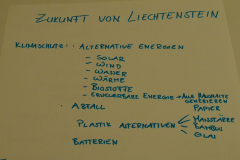 ZUKUNFT VON LIECHTENSTEIN
KLIMASCHUTZ: · ALTERNATIVE ENERGIEN
- SOLAR
- WIND
- WASSER
- WÄRME
- BIOSTOFFE
- ERNEUERBARE ENERGIE → ALLE HAUSHALTE
GENERIEREN
· ABFALL
PAPIER
PLASTIK ALTERNATIVEN
BAMBUS
GLAS
BATTERIEN